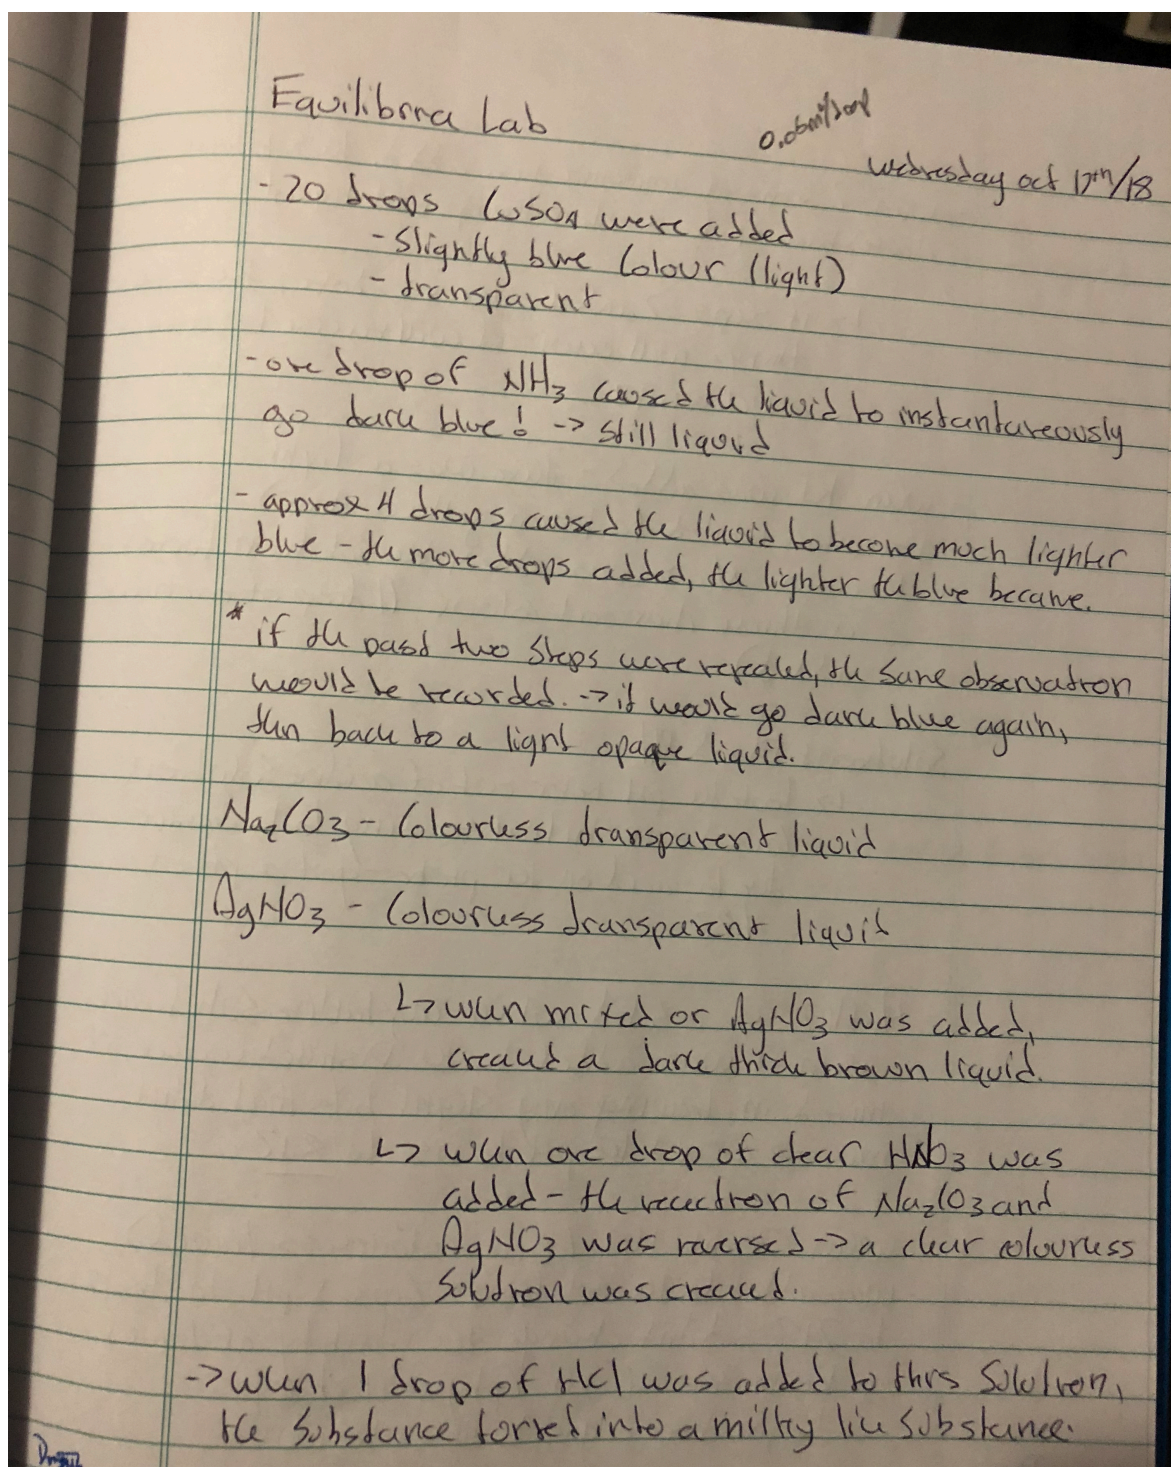 Equilibria Lab
0.06ml/drop
Wednesday oct 17th/18
- 20 drops CuSO4 were added
- slightly blue Colour (light)
- transparent
- one drop of NH3 caused the liquid to instantaneously
go dark blue! -> still liquid
- approx 4 drops caused the liquid to become much lighter
blue - the more drops added, the lighter the blue became.
* if the past two steps were repeated, the same observation
would be recorded. -> it would go dark blue again,
then back to a light opaque liquid.
Na2CO3 - Colourless transparent liquid
AgNO3 - Colourless transparent liquid
↳ when mixed or AgNO3 was added,
created a dark thick brown liquid.
↳ when one drop of clear HNO3 was
added - the reaction of Na2CO3 and
AgNO3 was reversed -> a clear colourless
solution was created.
-> when 1 drop of HCl was added to this solution,
the substance torred into a milky like substance.